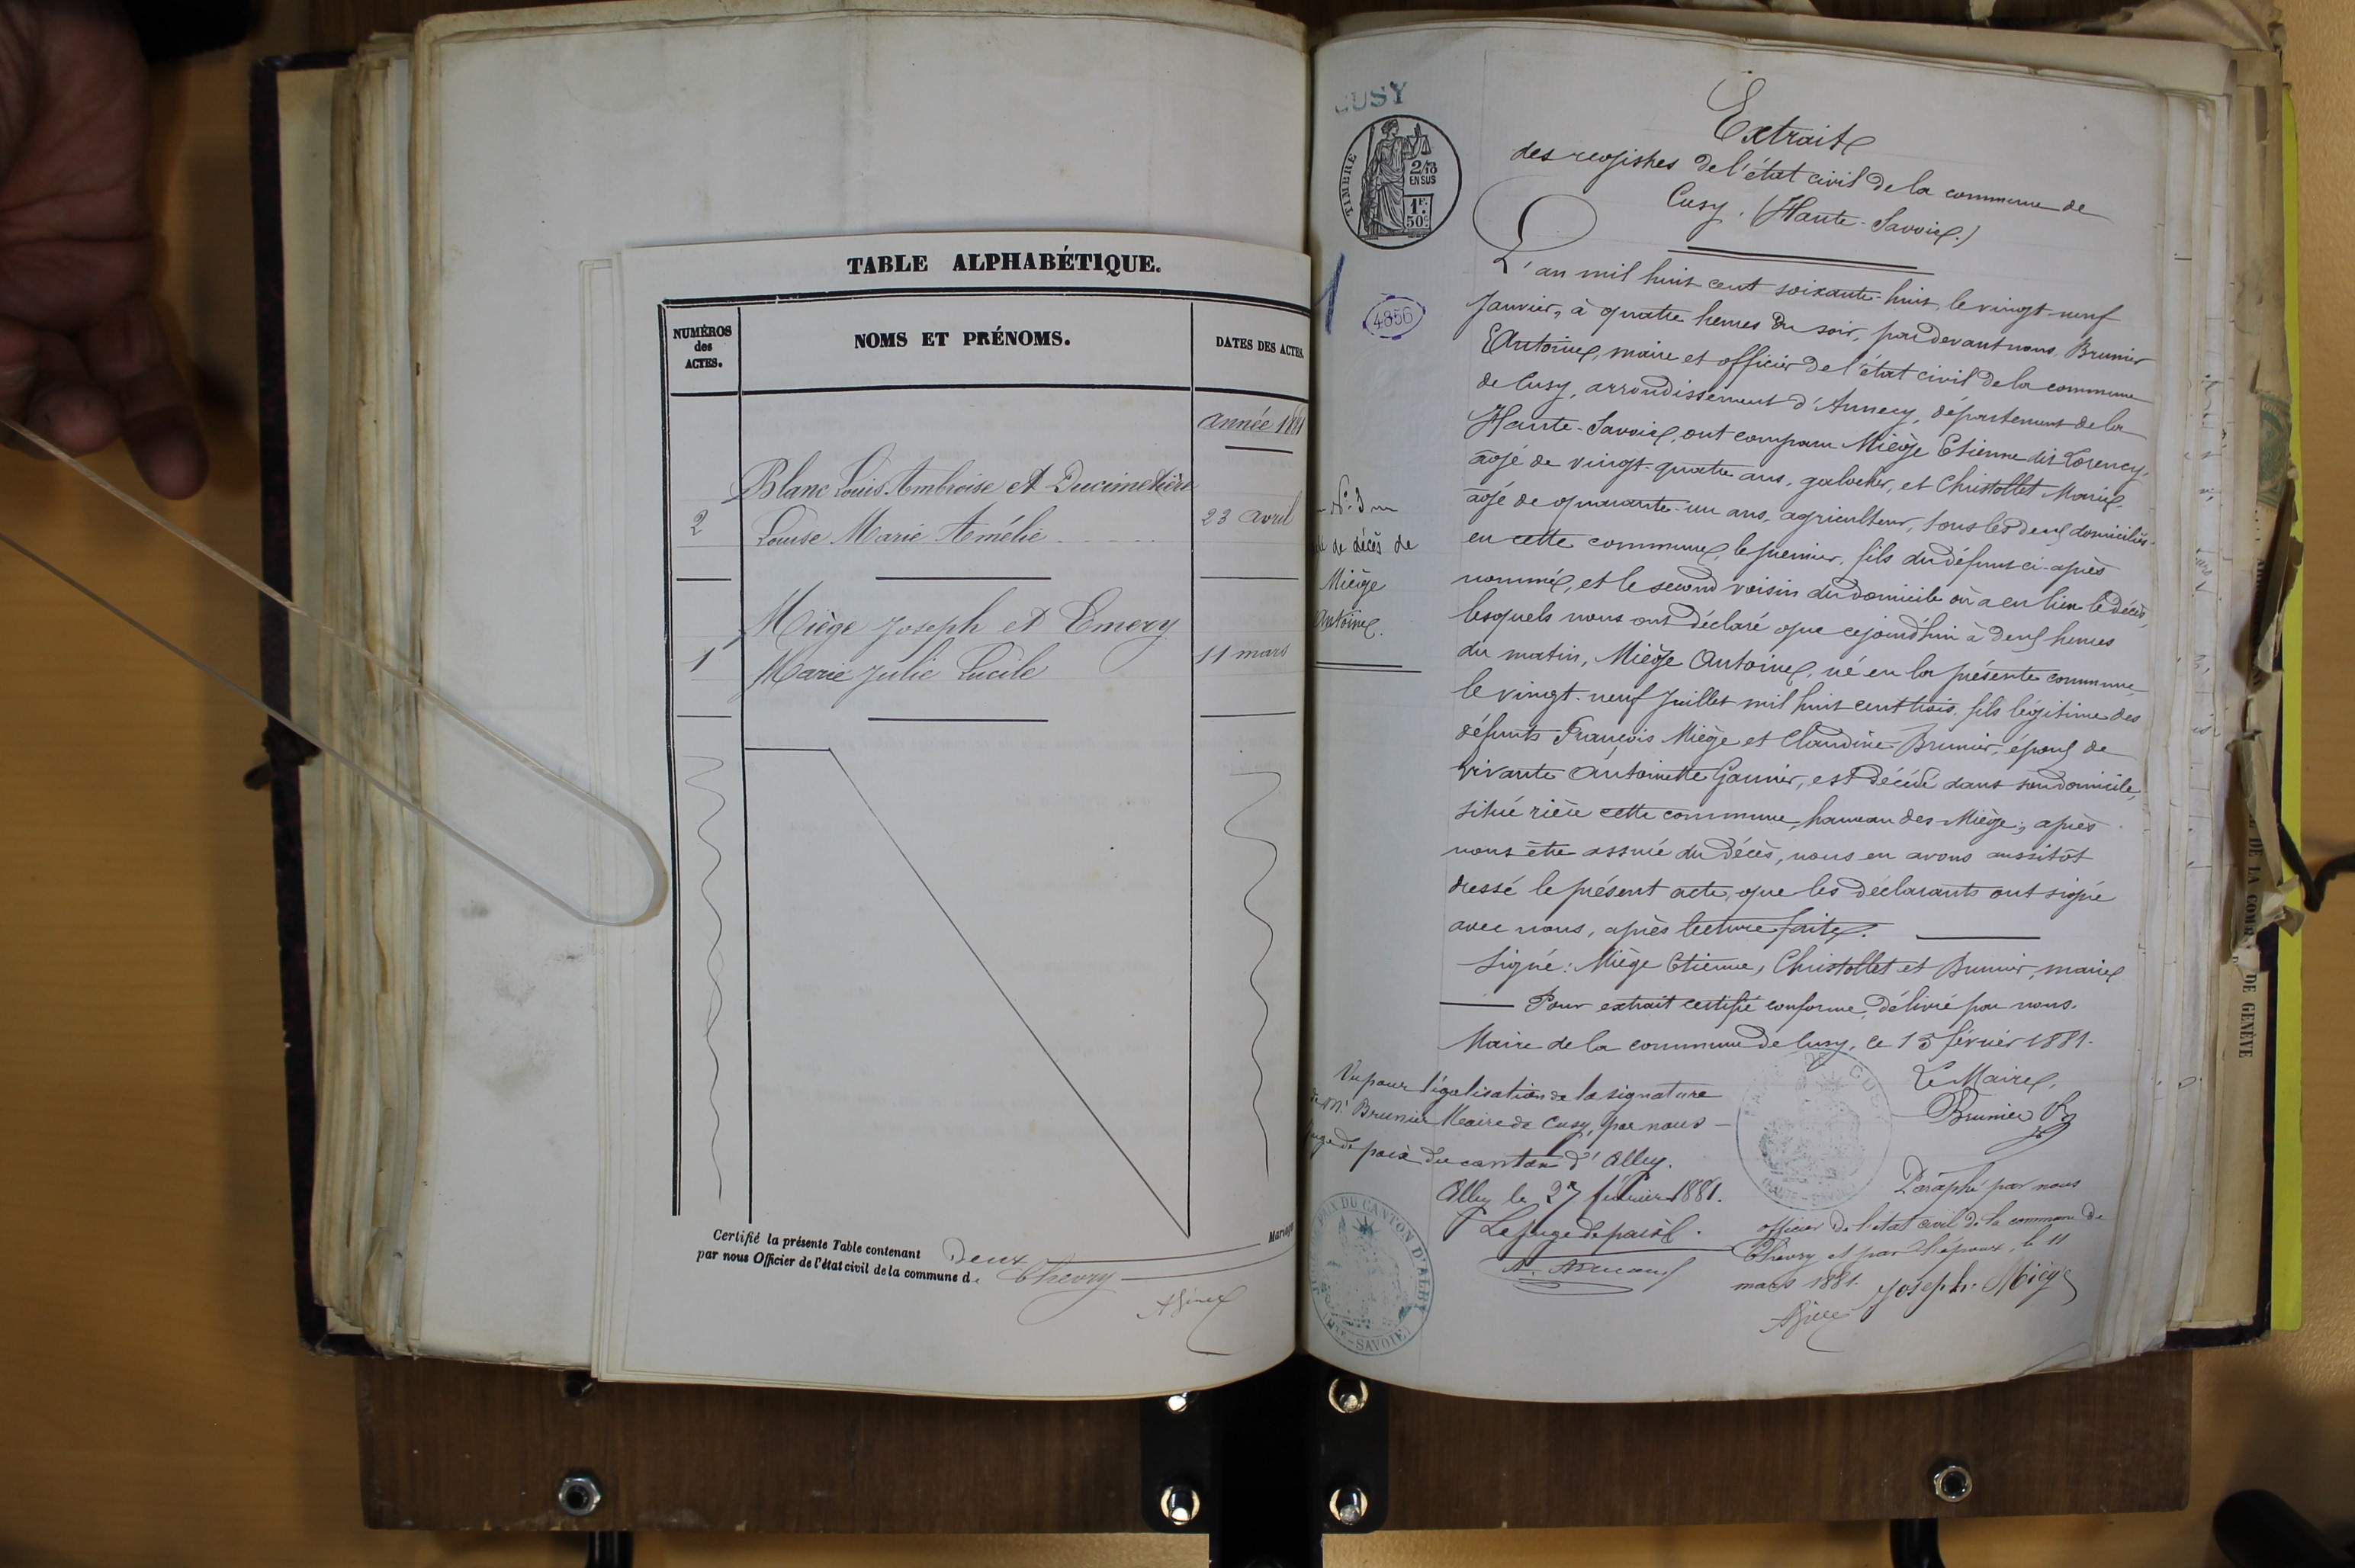 TABLE ALPHABÉTIQUE.
NUMÉROS
des
ACTES.
NOMS ET PRÉNOMS.
DATES DES ACTES.
année 1881
Blanc Louis Ambroise et Ducimetière
2 Louise Marie Amélie 23 avril
Miège Joseph et Emery
1 Marie Julie Lucile 11 mars
Certifié la présente Table contenant deux Mariages
par nous Officier de l'état civil de la commune d. Chevry
CUSY
TIMBRE
2/10
EN SUS
1F.
50c
4856
Extrait
des registres de l'état civil de la commune de
Cusy. (Haute-Savoie.)
N° 3
de décès de
Miège
Antoine.
L'an mil huit cent soixante-huit, le vingt-neuf
Janvier, à quatre heures du soir, par devant nous, Brunier
Antoine, maire et officier de l'état civil de la commune
de Cusy, arrondissement d'Annecy, département de la
Haute-Savoie, ont comparu Miège Etienne dit Lorency,
âgé de vingt-quatre ans, galocher, et Christollet Marie,
âgé de quarante-un ans, agriculteur, tous les deux domiciliés
en cette commune, le premier, fils du défunt ci-après
nommé, et le second voisin du domicile où a eu lieu le décès,
lesquels nous ont déclaré que cejourd'hui à deux heures
du matin, Miège Antoine, né en la présente commune
le vingt-neuf Juillet mil huit cent trois, fils légitime des
défunts François Miège et Claudine Brunier, époux de
vivante Antoinette Garnier, est décédé dans son domicile,
situé rière cette commune, hameau des Miège; après
nous être assuré du décès, nous en avons aussitôt
dressé le présent acte, que les déclarants ont signé
avec nous, après lecture faite.
Signé: Miège Etienne, Christollet et Brunier, maire
Pour extrait certifié conforme, délivré par nous.
Maire de la commune de Cusy, ce 13 février 1881.
Le Maire,
Brunier
Vu pour légalisation de la signature
de Mr Brunier Maire de Cusy, par nous
Juge de paix du canton d'Alby.
Alby le 27 février 1881.
Le juge de paix.
Paraphé par nous
officier de l'état civil de la commune de
Chevry et par l'époux, le 11
mars 1881. Joseph Miège
PAIX DU CANTON D'ALBY
(HTE-SAVOIE)
DE LA COM
DE GENÈVE